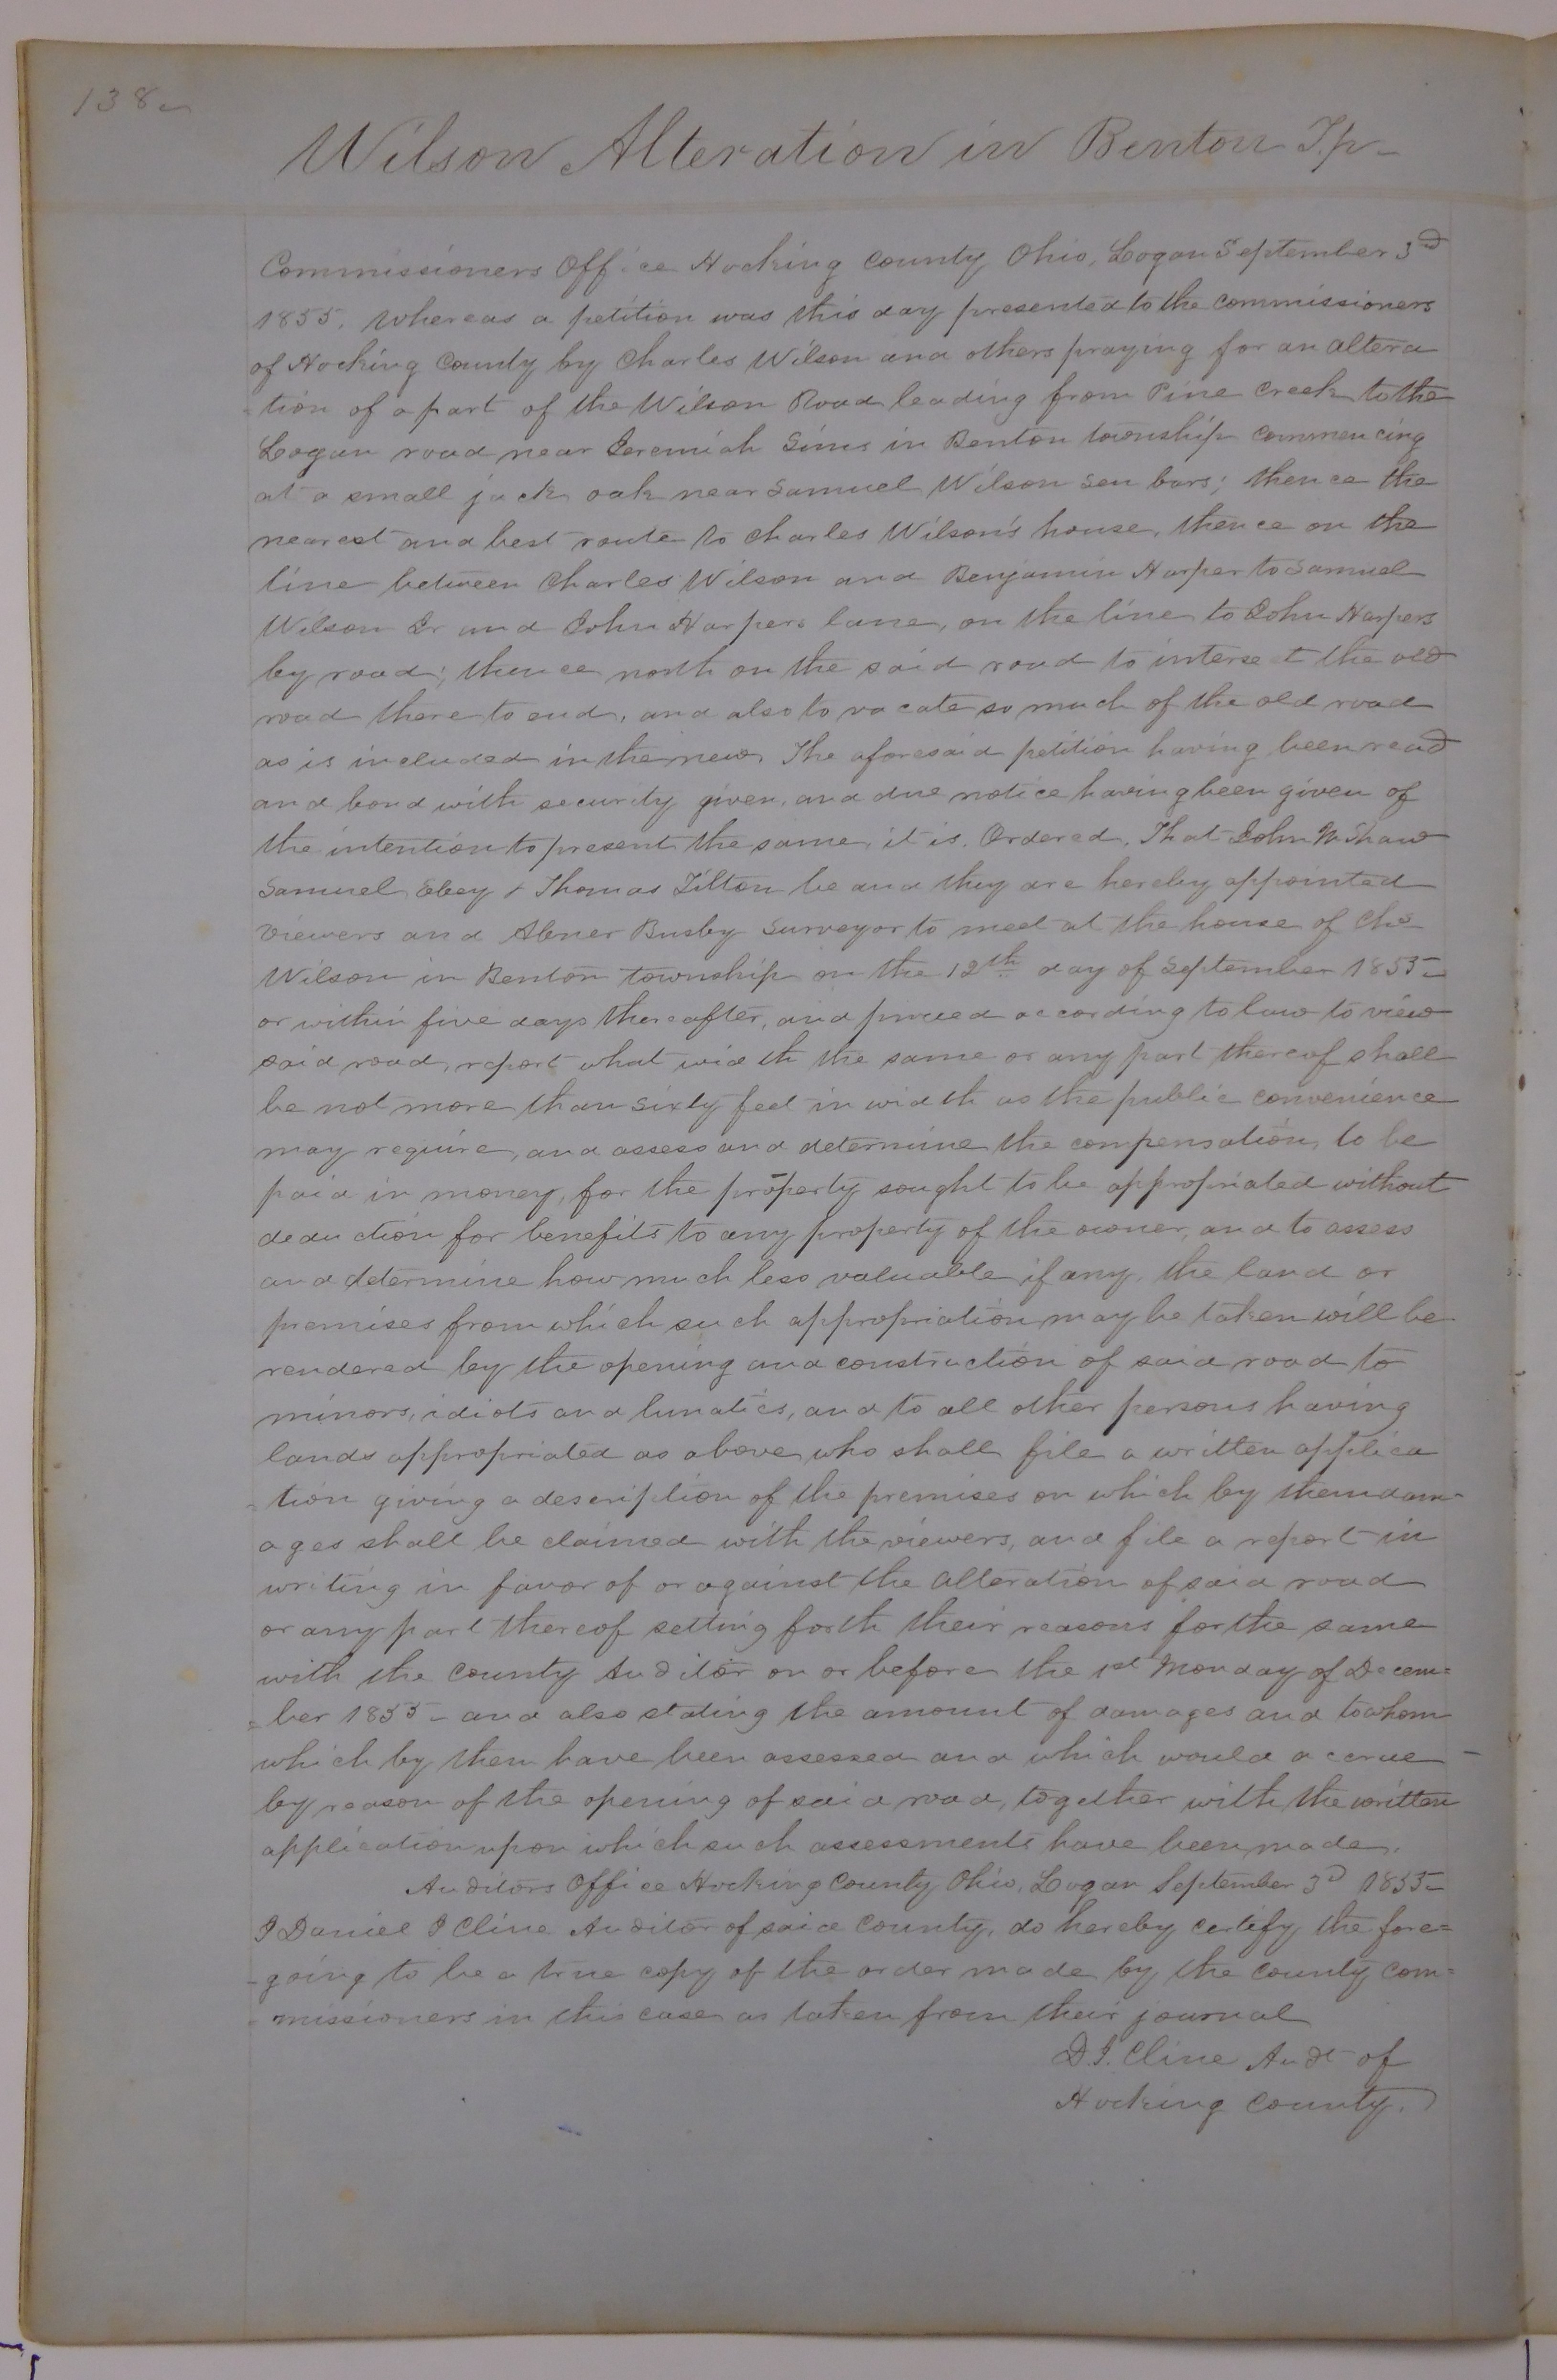 138
Wilson Alteration in Benton Tp
Commissioners Office Hocking County Ohio, Logan September 3d
1855, Whereas a petition was this day presented to the commissioners
of Hocking County by Charles Wilson and others praying for an altera
-tion of a part of the Wilson Road leading from Pine Creek to the
Logan road near Jeremiah Sims in Benton township commencing
at a small jack oak near Samuel Wilson Sen bars; thence the
nearest and best route to Charles Wilson's house, thence on the
line between Charles Wilson and Benjamin Harper to Samuel
Wilson Jr and John Harpers lane, on the line to John Harpers
by road; thence north on the said road to intersect the old
road there to end, and also to vacate so much of the old road
as is included in the new. The aforesaid petition having been read
and bond with security given, and due notice having been given of
the intention to present the same, it is. Ordered, That John W Shaw
Samuel Ebey & Thomas Tilton be and they are hereby appointed
viewers and Abner Busby Surveyor to meet at the house of Chs
Wilson in Benton township on the 12th day of September 1855-
or within five days thereafter, and proceed according to law to view
said road, report what width the same or any part thereof shall
be not more than sixty feet in width as the public convenience
may require, and assess and determine the compensation, to be
paid in money, for the property sought to be appropriated without
deduction for benefits to any property of the owner, and to assess
and determine how much less valuable if any, the land or
premises from which such appropriation may be taken will be
rendered by the opening and construction of said road to
minors, idiots and lunatics, and to all other persons having
lands appropriated as above who shall file a written applica
-tion giving a description of the premises on which by them dam-
ages shall be claimed with the viewers, and file a report in
writing in favor of or against the alteration of said road
or any part thereof setting forth their reasons for the same
with the County Auditor on or before the 1st Monday of Decem=
=ber 1855- and also stating the amount of damages and to whom
which by them have been assessed and which would accrue
by reason of the opening of said road, together with the written
application upon which such assessments have been made.
Auditors Office Hocking County Ohio, Logan September 3d 1855-
I Daniel I Cline Auditor of said County, do hereby certify the fore=
-going to be a true copy of the order made by the county com=
-missioners in this case as taken from their journal
D. I. Cline Audt of
Hocking County.